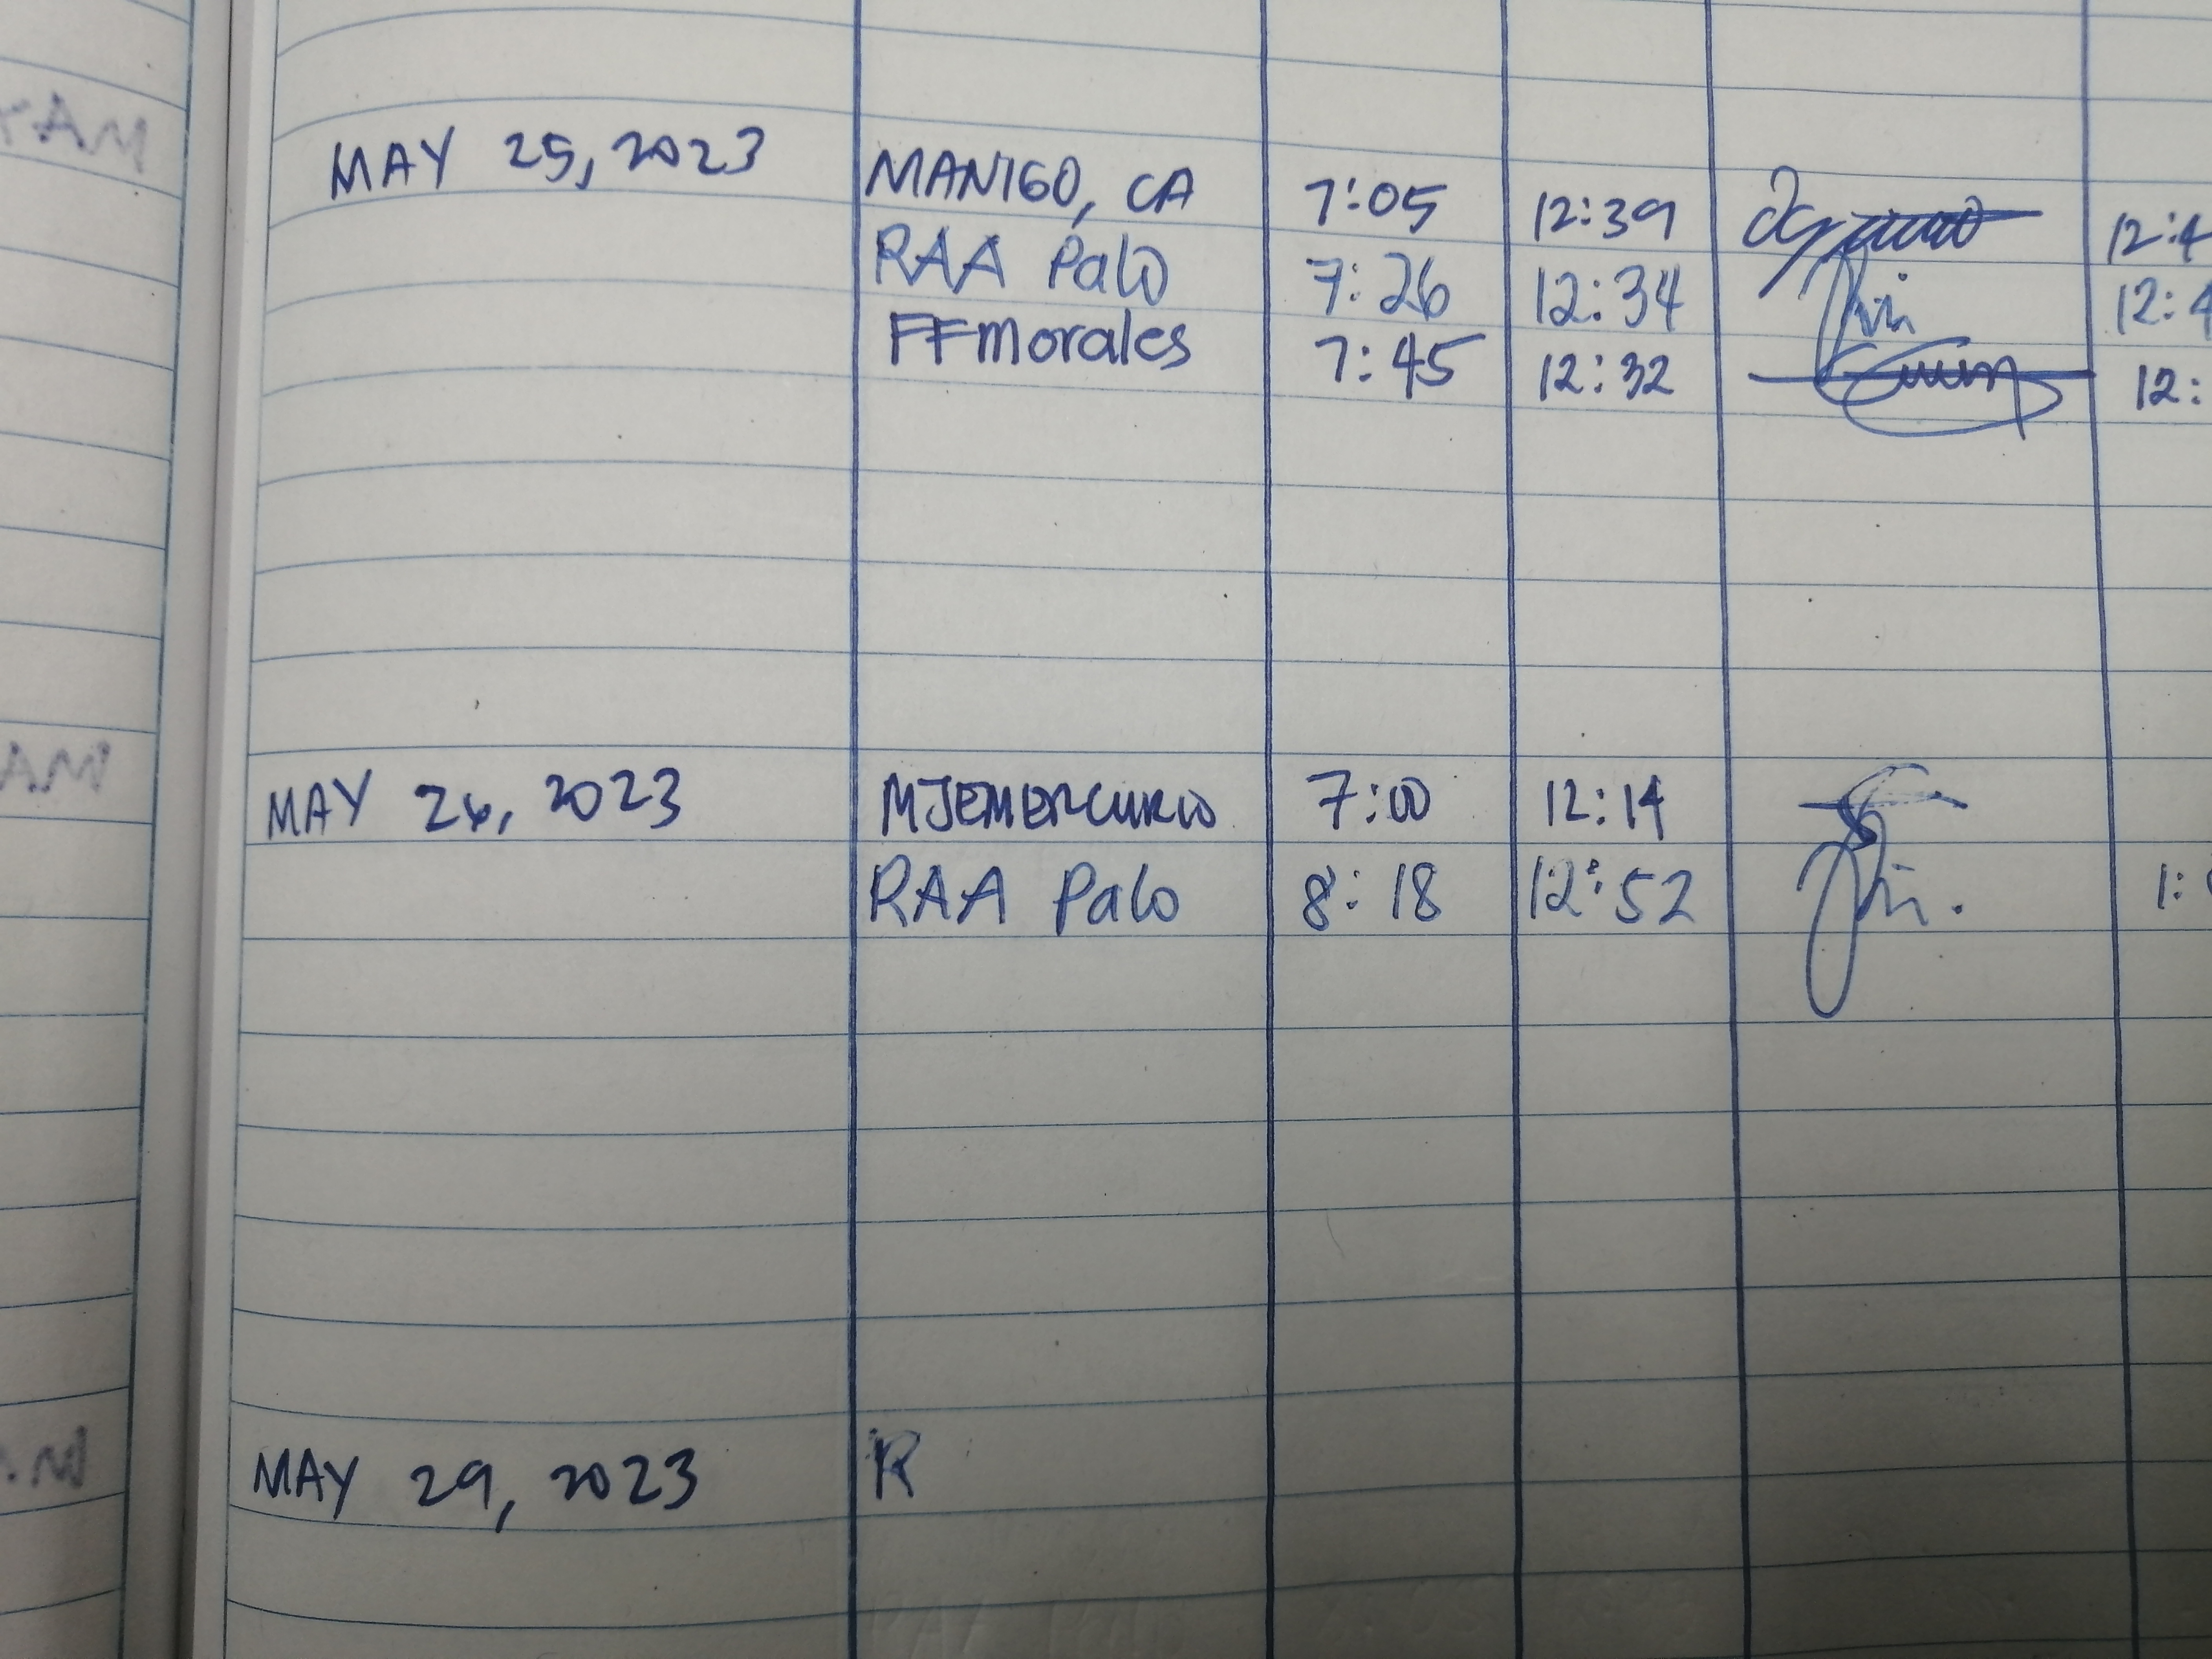 MAY 25, 2023 MANIGO, CA 7:05 12:39 12:4
RAA Palo 7:26 12:34 12:4
FFMorales 7:45 12:32 12:
MAY 26, 2023 MJEMERCURIO 7:00 12:14
RAA Palo 8:18 12:52 1:
MAY 29, 2023 R